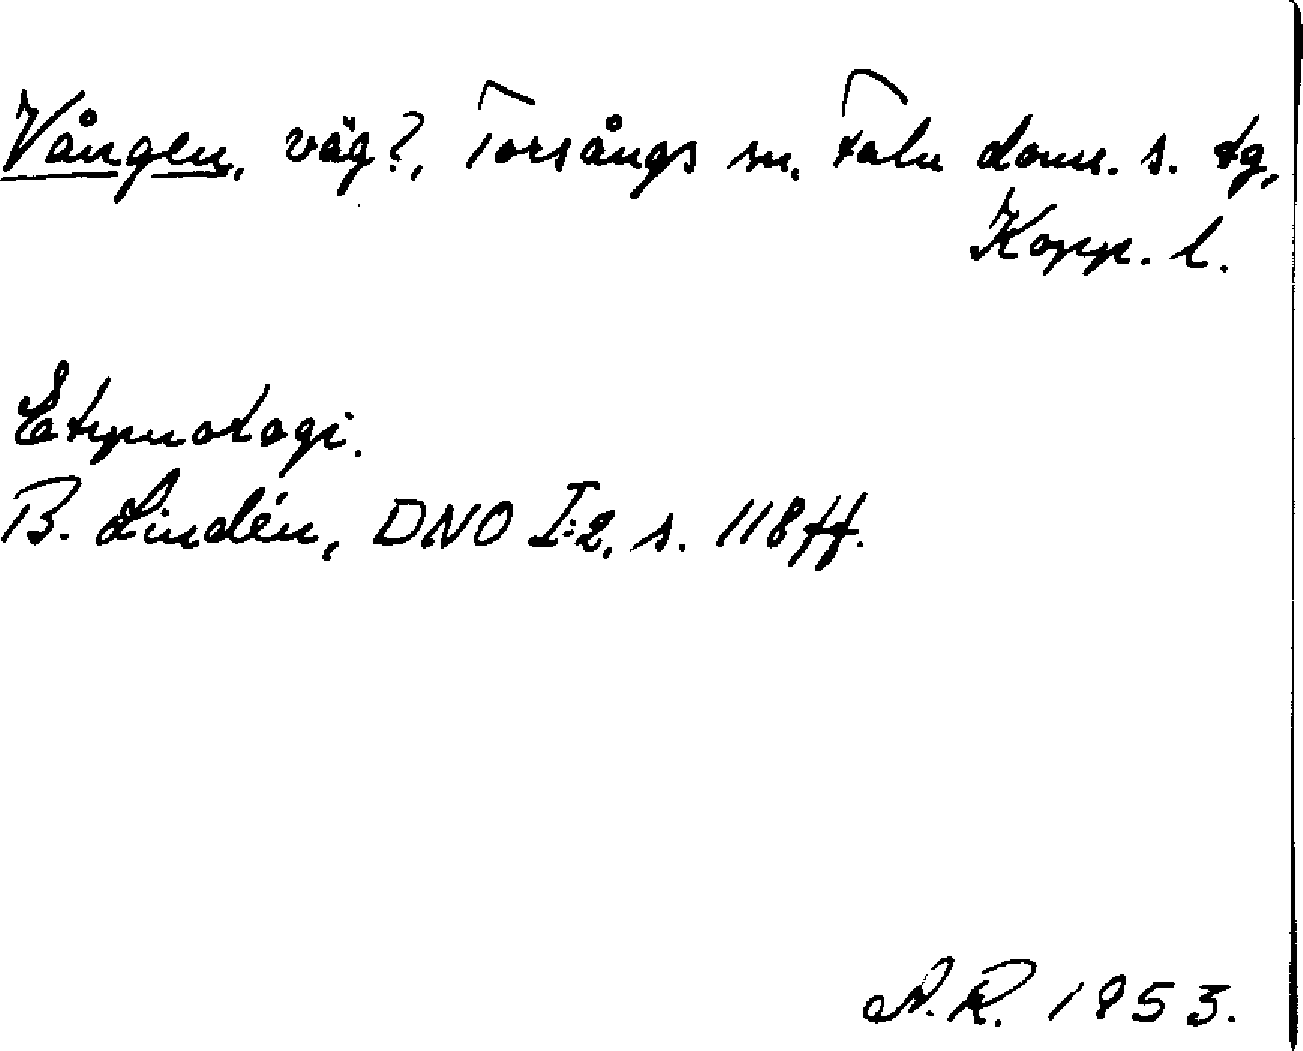 Vången, väg?, Torsångs sn, Falu doms. s. tg,
Kopp. l.
Etymologi.
B. Lindén, DNO I:2, s. 118 ff.
A.R. 1953.